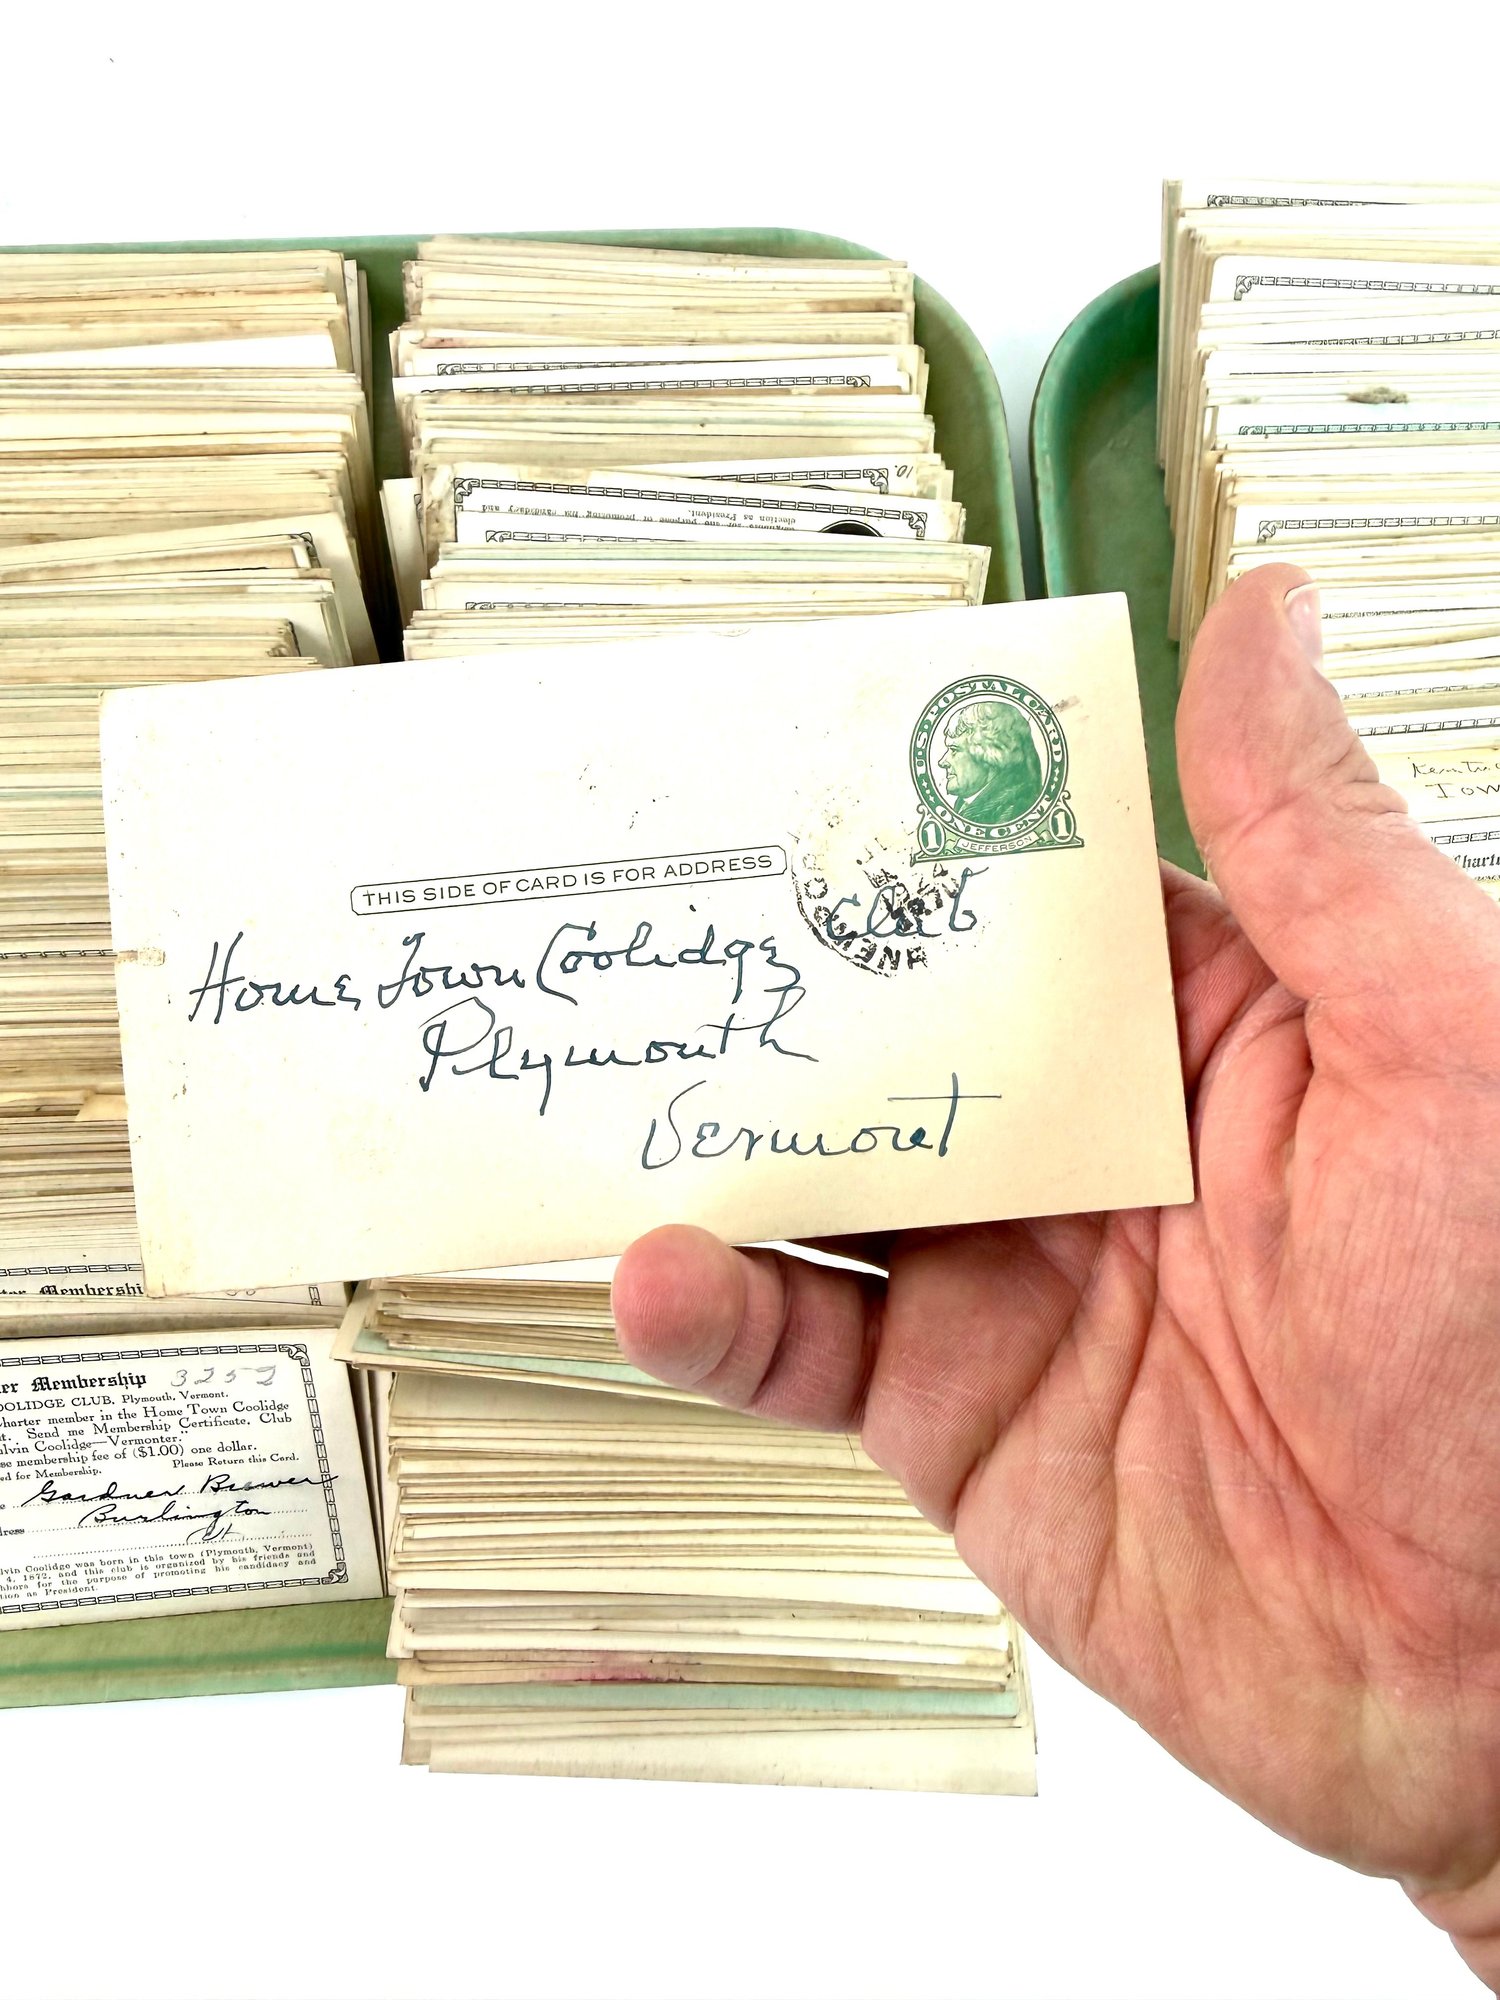 10.
election as President.
neighbors for the purpose of promoting his candidacy and
U.S. POSTAL CARD
ONE CENT
1 JEFFERSON 1
THIS SIDE OF CARD IS FOR ADDRESS
Home Town Coolidge Club
Plymouth
Vermont
Iow
Chart
ter Membershi
er Membership 3252
OOLIDGE CLUB, Plymouth, Vermont.
Charter member in the Home Town Coolidge
t. Send me Membership Certificate, Club
alvin Coolidge—Vermonter."
se membership fee of ($1.00) one dollar.
ed for Membership. Please Return this Card.
e Gardner Brewer
dress Burlington
Vt.
lvin Coolidge was born in this town (Plymouth, Vermont)
4, 1872, and this club is organized by his friends and
hbors for the purpose of promoting his candidacy and
tion as President.